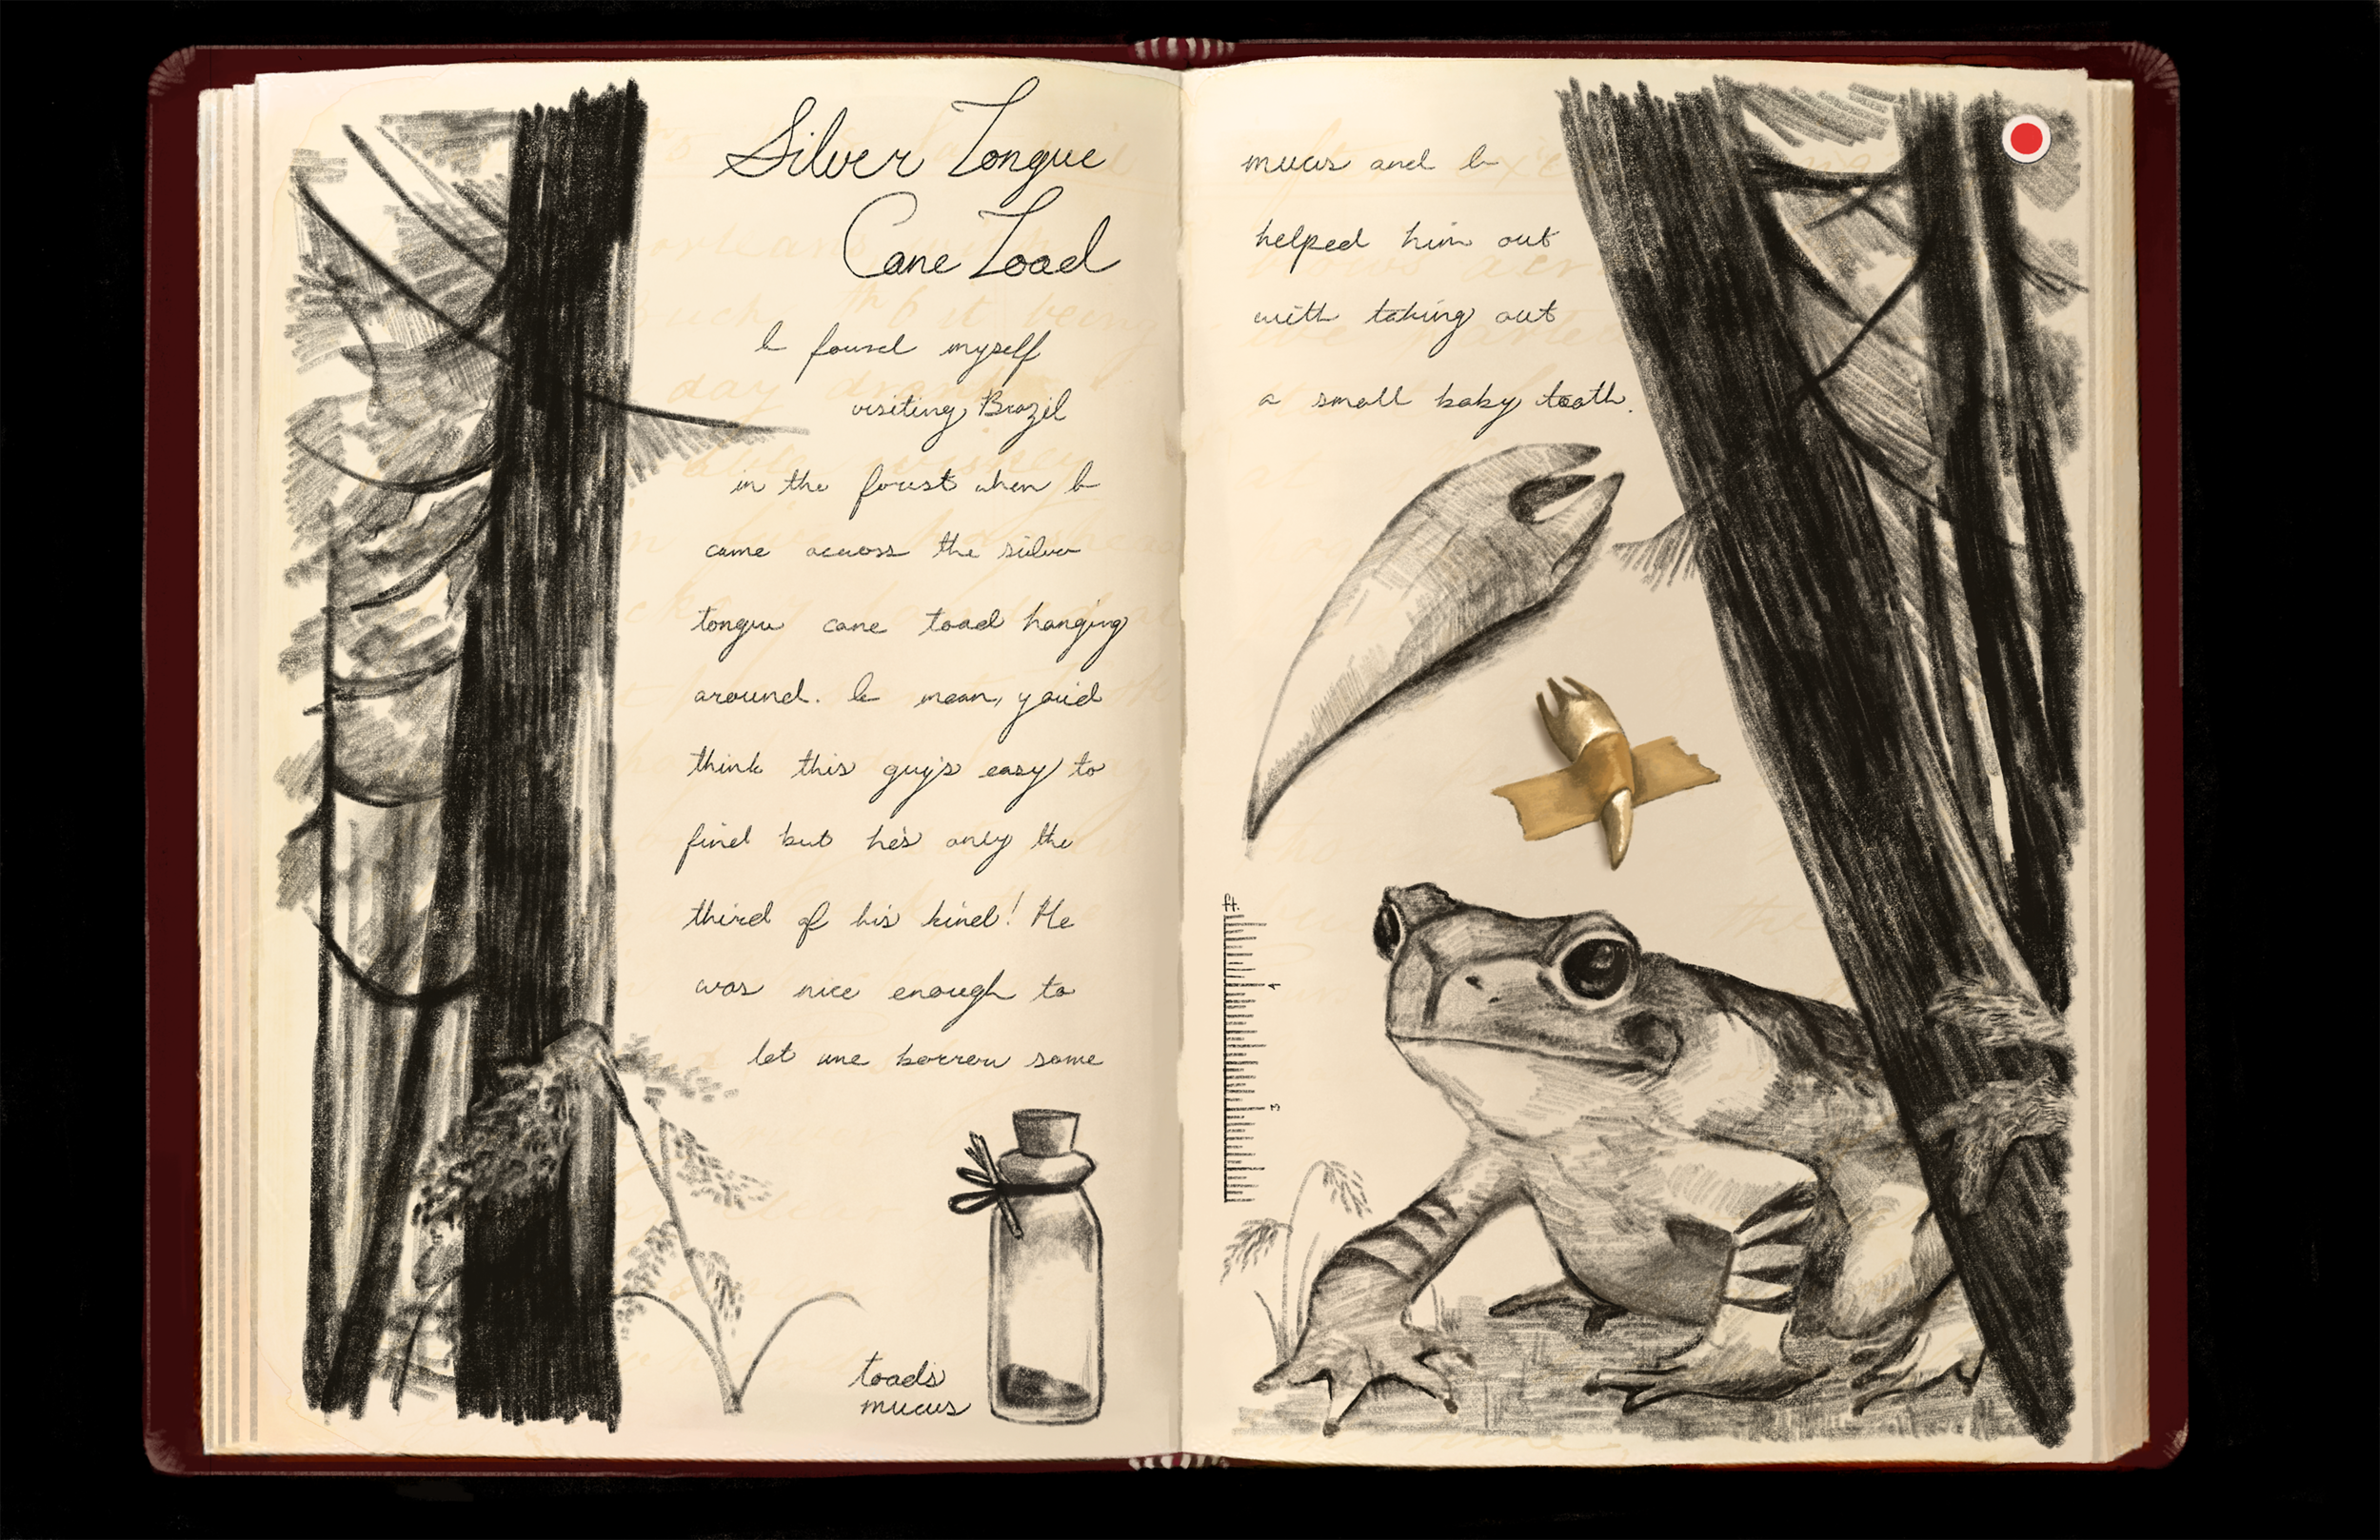 Silver Tongue
Cane Toad
I found myself
visiting Brazil
in the forest when I
came across the silver
tongue cane toad hanging
around. I mean, you'd
think this guy's easy to
find but he's only the
third of his kind! He
was nice enough to
let me borrow some
toad's
mucus
mucus and I
helped him out
with taking out
a small baby tooth.
ft.
4
3